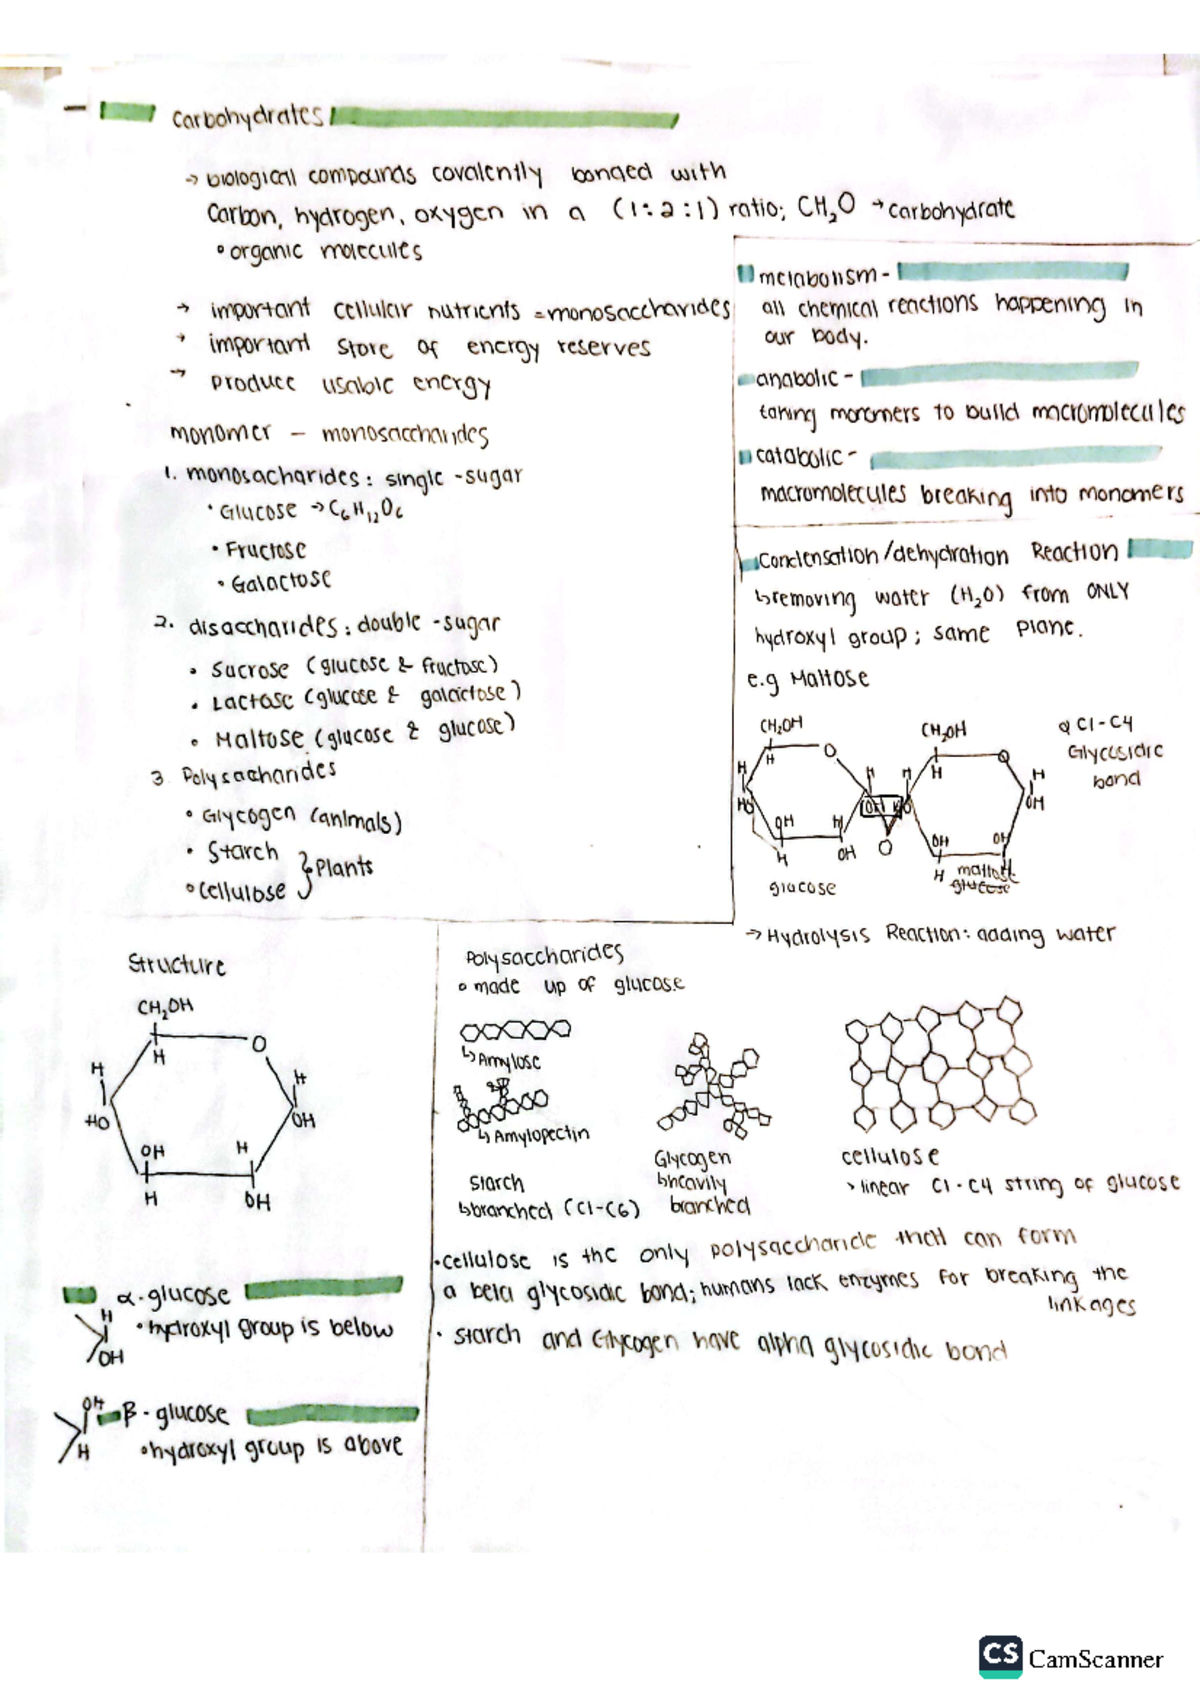 Carbohydrates
→ biological compounds covalently bonded with
Carbon, hydrogen, oxygen in a (1:2:1) ratio; CH₂O → carbohydrate
• organic molecules
→ important cellular nutrients = monosaccharides
→ important store of energy reserves
→ produce usable energy
monomer – monosaccharides
1. monosacharides: single -sugar
• Glucose → C₆H₁₂O₆
• Fructose
• Galactose
2. disaccharides: double -sugar
• Sucrose (glucose & fructose)
• Lactose (glucose & galactose)
• Maltose (glucose & glucose)
3. Polysacharides
• Glycogen (animals)
• Starch
• Cellulose } Plants
metabolism -
all chemical reactions happening in
our body.
anabolic -
taking monomers to build macromolecules
catabolic -
macromolecules breaking into monomers
Condensation/dehydration Reaction
↳ removing water (H₂O) from ONLY
hydroxyl group; same plane.
e.g Maltose
CH₂OH
O
H
H
HO
OH
H
H
OH
H
OH
H
O
CH₂OH
H
H
O
H
OH
OH
OH
H
α C1-C4
Glycosidic
bond
glucose
maltose
glucose
→ Hydrolysis Reaction: adding water
Structure
CH₂OH
H
O
H
HO
H
OH
OH
H
H
OH
α-glucose
• hydroxyl group is below
H
OH
OH
β-glucose
• hydroxyl group is above
H
Polysaccharides
• made up of glucose
↳ Amylose
↳ Amylopectin
Starch
↳ branched (C1-C6)
Glycogen
↳ heavily
branched
cellulose
> linear C1-C4 string of glucose
• cellulose is the only polysaccharide that can form
a beta glycosidic bond; humans lack enzymes for breaking the
linkages
• starch and Glycogen have alpha glycosidic bond
CS CamScanner